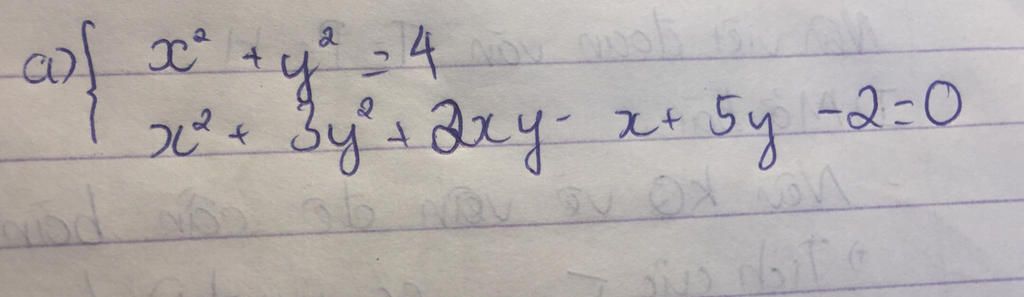 a) { x² + y² = 4
x² + 3y² + 2xy - x + 5y - 2 = 0